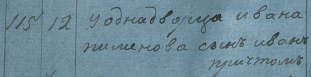 115 12 У однадворца ивана
пименова сынъ иванъ
причтомъ